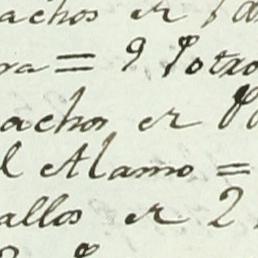 achos er
ra = 9 Potro
achos er
l Alamo =
allos er 2